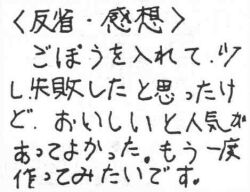 〈反省・感想〉
ごぼうを入れて、少
し失敗したと思ったけ
ど、おいしいと人気が
あってよかった。もう一度
作ってみたいです。